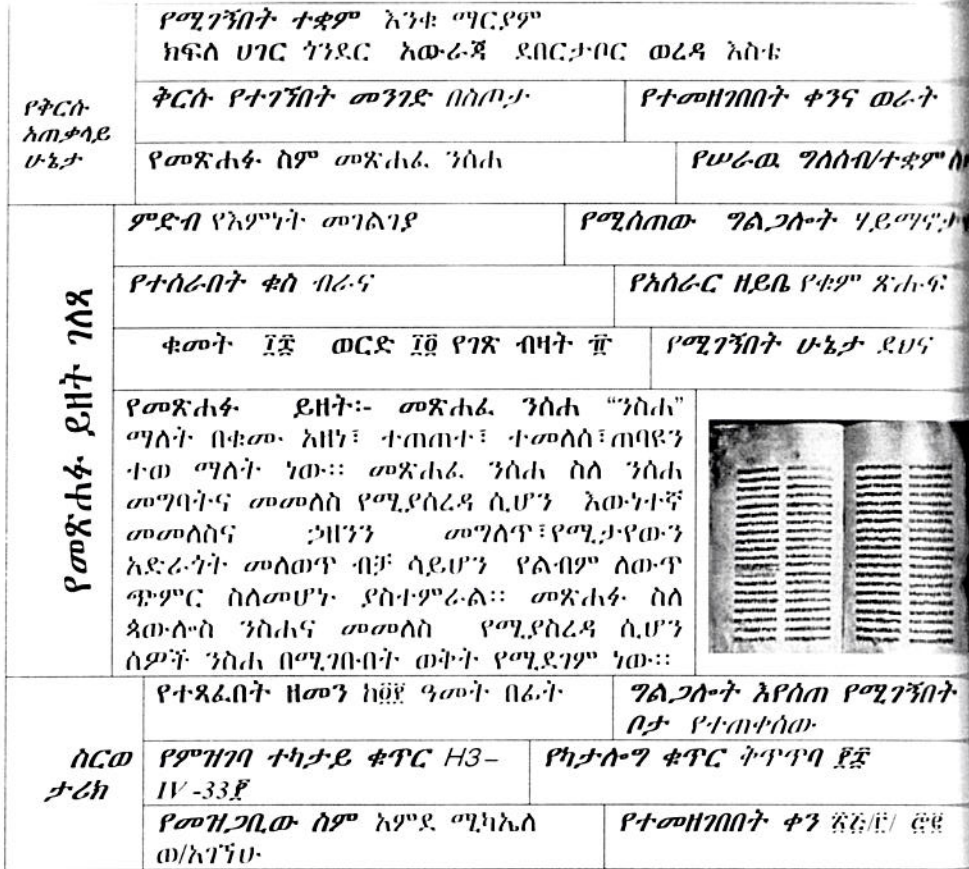 የሚገኝበት ተቋም እንቁ ማርያም
ክፍለ ሀገር ጎንደር አውራጃ ደበርታቦር ወረዳ እስቴ
የቅርሱ አጠቃላይ ሁኔታ
ቅርሱ የተገኘበት መንገድ በስጦታ
የተመዘገበበት ቀንና ወራት
የመጽሐፉ ስም መጽሐፈ ንስሐ
የሠራዉ ግለሰብ/ተቋም
የመጽሐፉ ይዘት ገለጻ
ምድብ የእምነት መገልገያ
የሚሰጠው ግልጋሎት
የተሰራበት ቁስ ብራና
የአሰራር ዘይቤ የቁም ጽሑፍ
ቁመት ፲፰ ወርድ ፲፬ የገጽ ብዛት ፹
የሚገኝበት ሁኔታ ደህና
የመጽሐፉ ይዘት፡- መጽሐፈ ንስሐ “ንስሐ”
ማለት በቁሙ አዘነ፣ ተጠጠተ፣ ተመለሰ፣ጠባዩን
ተወ ማለት ነው። መጽሐፈ ንስሐ ስለ ንስሐ
መግባትና መመለስ የሚያሰረዳ ሲሆን እውነተኛ
መመለስና ኃዘንን መግለጥ፣የሚታየውን
አድራጎት መለወጥ ብቻ ሳይሆን የልብም ለውጥ
ጭምር ስለመሆኑ ያስተምራል። መጽሐፉ ስለ
ጳውሎስ ንስሐና መመለስ የሚያስረዳ ሲሆን
ሰዎች ንስሐ በሚገቡበት ወቅት የሚደገም ነው።
ስርወ ታሪክ
የተጻፈበት ዘመን ዓመት በፊት
ግልጋሎት እየሰጠ የሚገኝበት
ቦታ የተጠቀሰው
የምዝገባ ተካታይ ቁጥር H3–
IV -33፼
የካታሎግ ቁጥር ቅጥጥባ
የመዝጋቢው ስም አምደ ሚካኤለ
ወ/አገኘሁ
የተመዘገበበት ቀን